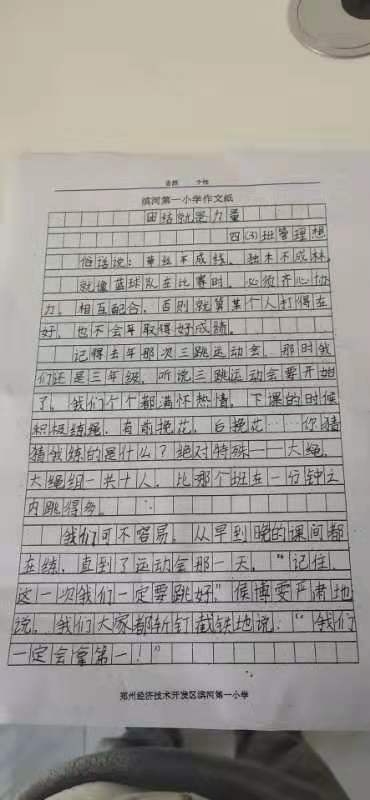 滨河第一小学作文纸
团结就是力量
四(3)班管理想
俗话说：单丝不成线，独木不成林。
就像蓝球队在比赛时，必须齐心协
力，相互配合，否则就算某个人打得在
好，也不会年取得好成绩。
记得去年那次三跳运动会，那时我
们还是三年级，听说三跳运动会要开始
了，我们个个都满怀热情。下课的时候
积极练绳，有前挽花，后挽花……你猜
猜我练的是什么？绝对特殊——大绳。
大绳组一共十人，比那个班在一分钟之
内跳得多。
我们可不容易。从早到晚的课间都
在练，直到了运动会那一天。“记住，
这一次我们一定要跳好”侯博雯严肃地
说。我们大家都斩钉截铁地说：“我们
一定会拿第一！”
郑州经济技术开发区滨河第一小学